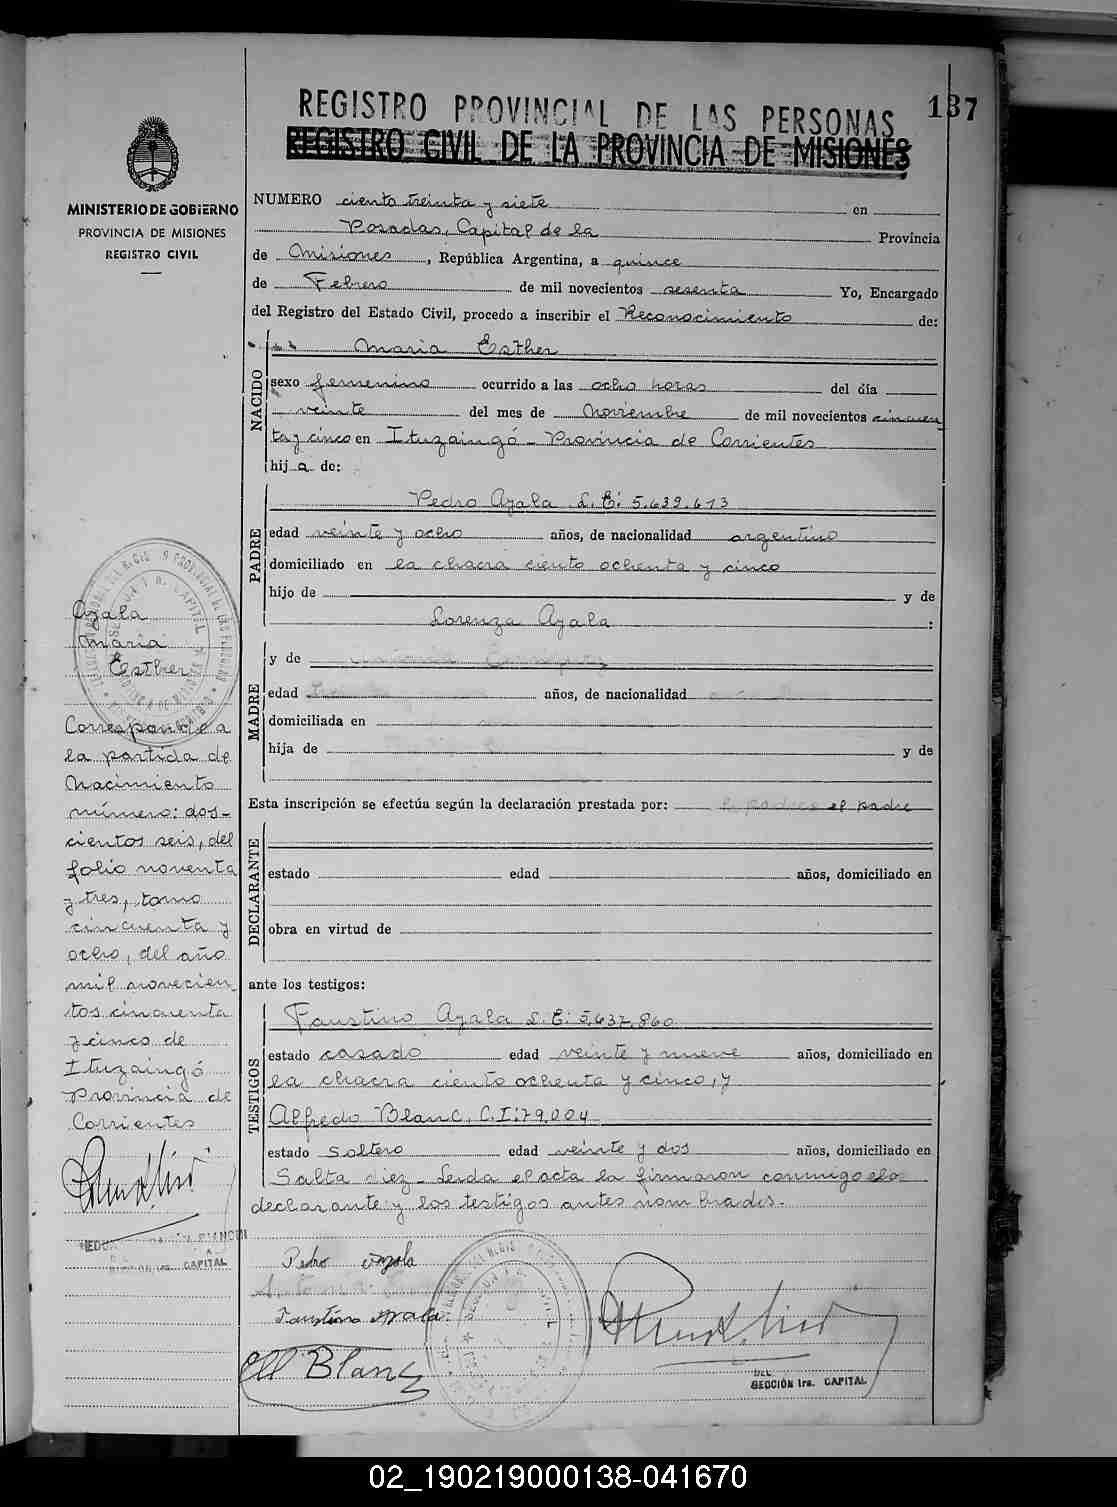 REGISTRO PROVINCIAL DE LAS PERSONAS 137
REGISTRO CIVIL DE LA PROVINCIA DE MISIONES
MINISTERIO DE GOBIERNO
PROVINCIA DE MISIONES
REGISTRO CIVIL
NUMERO ciento treinta y siete en
Posadas, Capital de la Provincia
de Misiones, República Argentina, a quince
de Febrero de mil novecientos sesenta Yo, Encargado
del Registro del Estado Civil, procedo a inscribir el Reconocimiento de:
NACIDO
Maria Esther
sexo femenino ocurrido a las ocho horas del día
veinte del mes de Noviembre de mil novecientos cincuen
ta y cinco en Ituzaingó - Provincia de Corrientes
hija de:
PADRE
Pedro Ayala L.E: 5.639.613
edad veinte y ocho años, de nacionalidad argentino
domiciliado en la chacra ciento ochenta y cinco
hijo de y de
Lorenza Ayala :
MADRE
y de
edad años, de nacionalidad
domiciliada en
hija de y de
Esta inscripción se efectúa según la declaración prestada por: el padre
DECLARANTE
estado edad años, domiciliado en
obra en virtud de
ante los testigos:
TESTIGOS
Faustino Ayala L.E: 5.637.860
estado casado edad veinte y nueve años, domiciliado en
la chacra ciento ochenta y cinco, y
Alfredo Blanc, C.I: 79.004
estado Soltero edad veinte y dos años, domiciliado en
Salta diez - Leida el acta la firmaron conmigo el
declarante y los testigos antes nombrados.
Ayala
Maria
Esther
Corresponde a
la partida de
Nacimiento
número: dos-
cientos seis, del
folio noventa
y tres, tomo
cincuenta y
ocho, del año
mil novecien
tos cincuenta
y cinco de
Ituzaingó
Provincia de
Corrientes
SECCIÓN 1ra. CAPITAL
Pedro Ayala
Faustino Ayala
All Blanc
DEL
SECCIÓN 1ra. CAPITAL
02_190219000138-041670